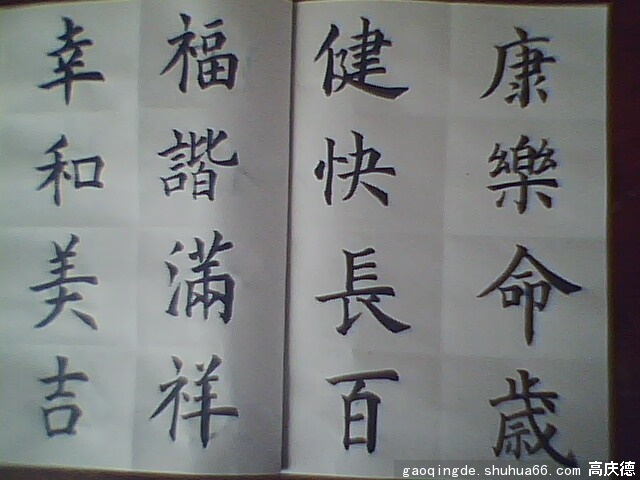 幸福健康
和諧快樂
美滿長命
吉祥百歲
gaoqingde.shuhua66.com 高庆德